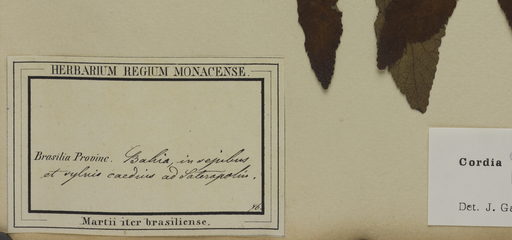 HERBARIUM REGIUM MONACENSE.
Brasilia Provinc. Bahia, in sepibus
et sylvis caeduis ad Soteropolin.
Martii iter brasiliense.
Cordia
Det. J. Ga